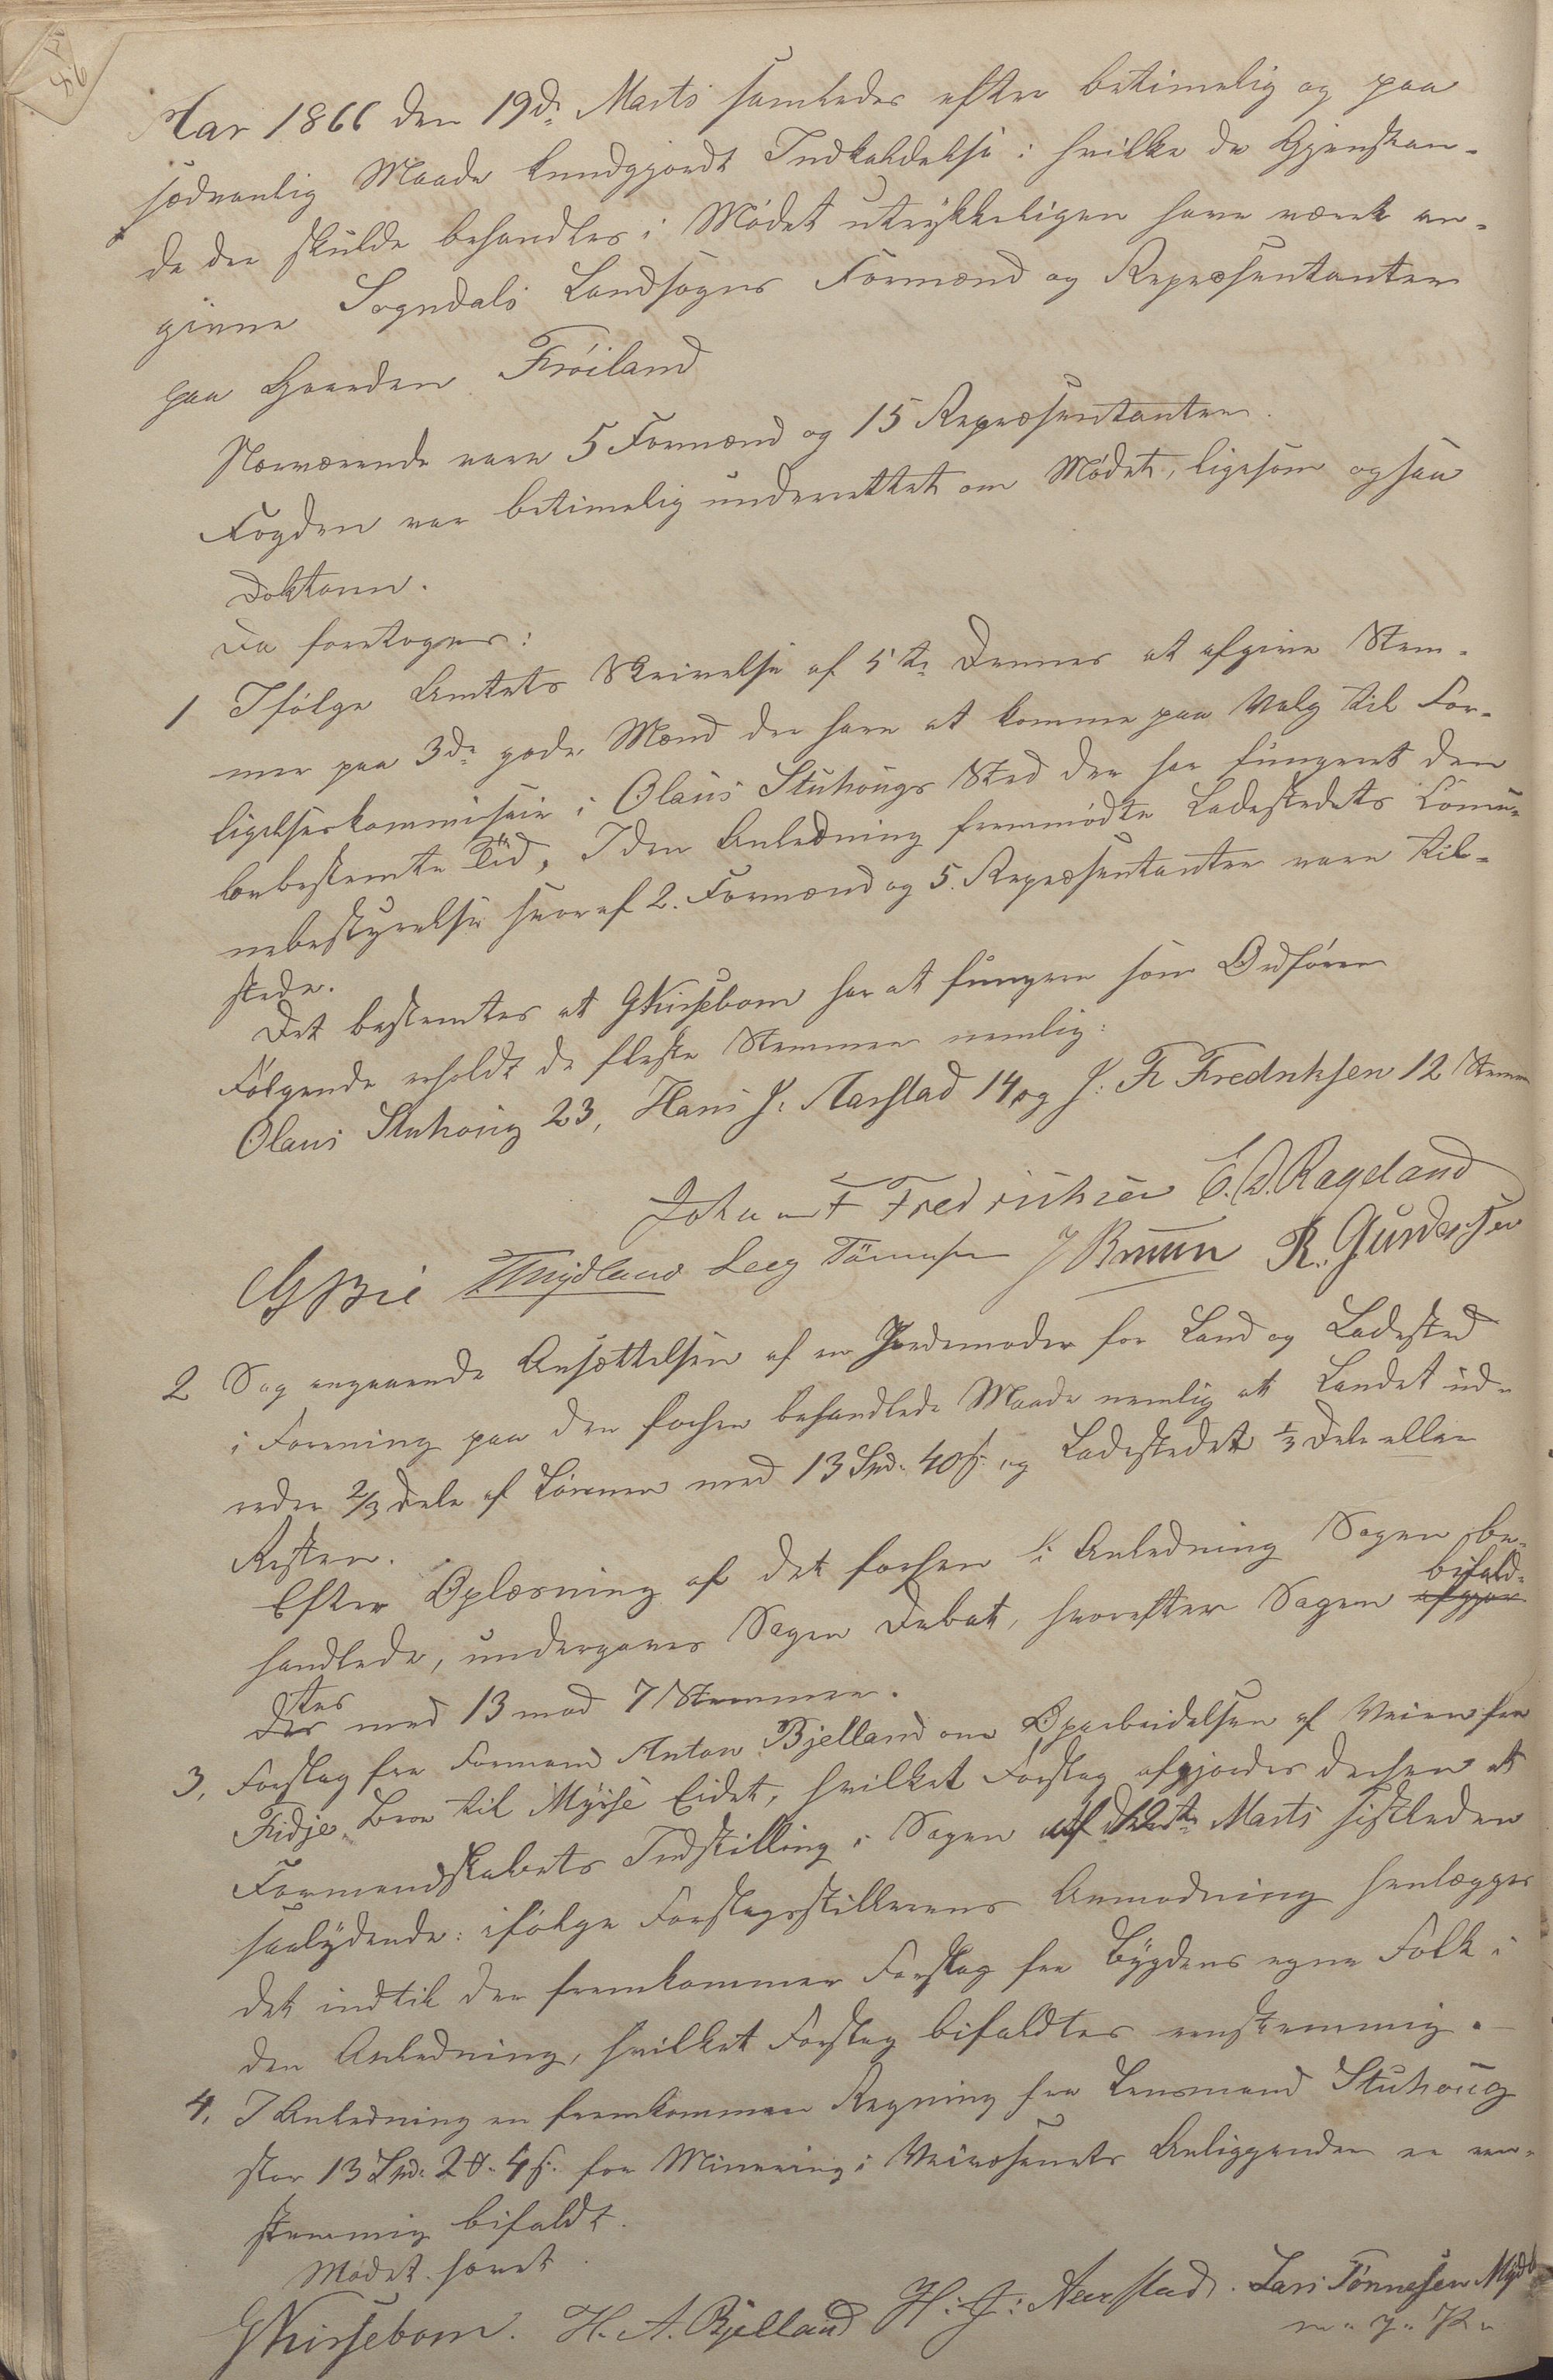 Aar 1866 den 19de Marts samledes efter betimelig og paa
sædvanlig Maade kundgjordt Indkaldelse i hvilke de Gjenstan-
de der skulde behandles i Mødet utrykkeligen have været an-
givne Sogndals Landsogns Formænd og Repræsentanter
paa Gaarden Frøiland
Nærværende vare 5 Formænd og 15 Repræsentanter.
Fogden var betimelig underrettet om Mødet, ligesom ogsaa
Doktoren.
Da foretoges:
1 Ifølge Amtets Skrivelse af 5te Dennes at afgive Stem-
mer paa 3de gode Mænd der have at komme paa Valg til For-
ligelseskommisair i Olaus Stuhougs Sted der har fungeret den
lovbestemte Tid, I den Anledning fremmødte Ladestedets Comu-
nebestyrelse hvoraf 2. Formænd og 5. Repræsentanter vare til-
stede.
Det bestemtes at GKirsebom har at fungere som Ordfører
Følgende erholdt de fleste Stemmer nemlig:
Olaus Stuhoug 23, Hans J. Aarstad 14 og J. Fr Fredriksen 12 Stemmer
Johan F Fredrichsen E. D. Rageland
G Bie TMydland Seeg Tönnesen J Bruun R. Gundersen
2 Sag angaaende Ansættelsen af en Jordemoder for Land og Ladested
i Forening paa den forhen behandlede Maade nemlig at Landet ud-
reder 2/3 Dele af Lønnen med 13 Spd. 40 s. og Ladestedet 1/3 Dele eller
Resten.
Efter Oplæsning af det forhen i Anledning Sagen be-
handlede, undergaves Sagen Debat, hvorefter Sagen afgjor bifald-
des tes med 13 mod 7 Stemmer.
3, Forslag fra Formand Anton Bjelland om Oparbeidelsen af Veien fra
Fidje Bro til Mysse Eidet, hvilket Forslag afgjordes derhen at
Formandskabets Indstilling i Sagen af 12te Marts sistleden
saalydende: ifølge Forslagsstillerens Anmodning henlægges
det indtil der fremkommer Forslag fra Bygdens egne Folk i
den Anledning, hvilket Forslag bifaldtes eenstemmig.
4, I Anledning en fremkommen Regning fra Lensmand Stuhoug
stor 13 Spd. 2 . 4 s. for Minering i Veivæsenets Anliggender er een-
stemmig bifaldt.
Mødet hævet
GKirsebom. H. A. Bjelland H: J: Aarstad. Lars Tønnesen Mydl
m. J. P.